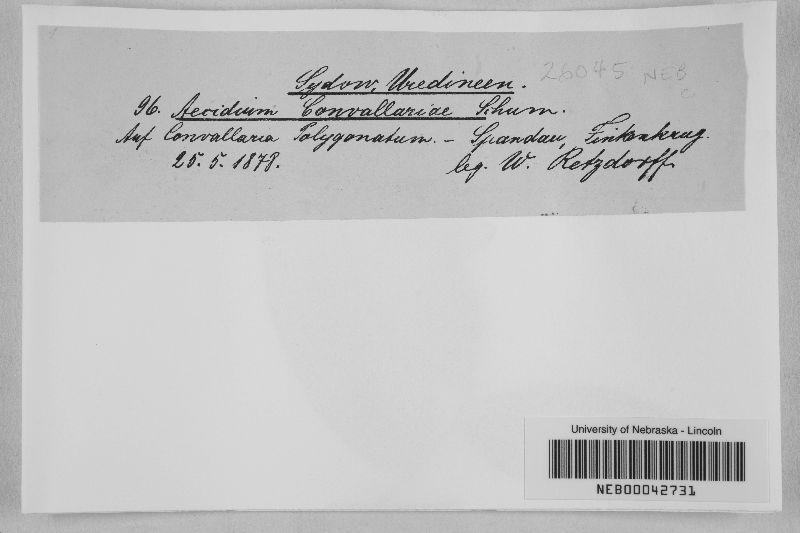 Sydow, Uredineen.
26045 NEB
C
96. Aecidium Convallariae Schum.
Auf Convallaria Polygonatum. – Spandau, Finkenkrug.
25. 5. 1878. leg. W. Retzdorff
University of Nebraska - Lincoln
NEB00042731